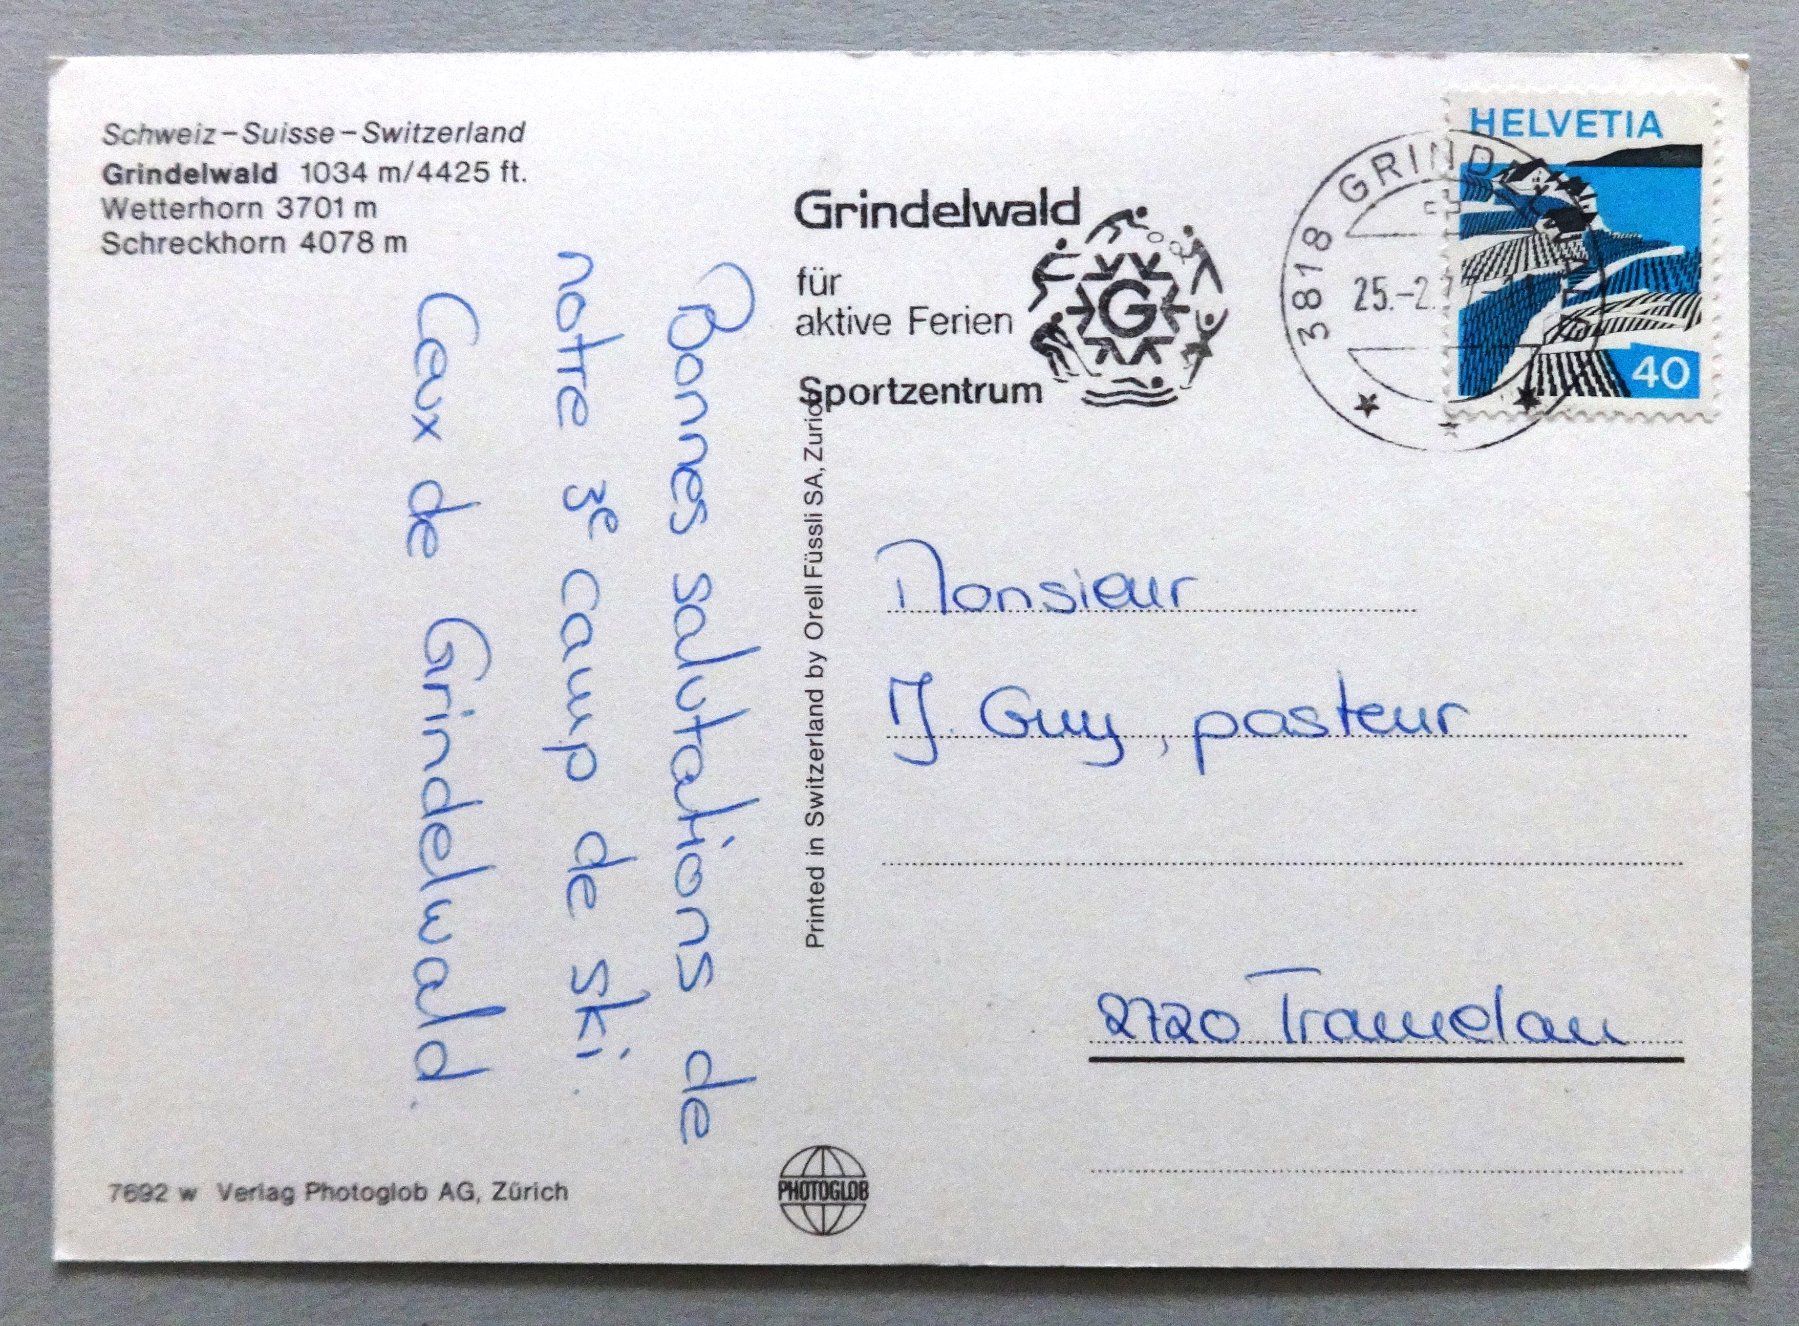 Schweiz – Suisse – Switzerland
Grindelwald 1034 m/4425 ft.
Wetterhorn 3701 m
Schreckhorn 4078 m
Bonnes salutations de
notre 3e camp de ski.
Ceux de Grindelwald.
7692 w Verlag Photoglob AG, Zürich
PHOTOGLOB
Printed in Switzerland by Orell Füssli SA, Zurich
Grindelwald
für
aktive Ferien
Sportzentrum
G
3818 GRINDELWALD
25.-2.
HELVETIA
40
Monsieur
J. Guy, pasteur
2720 Tramelan